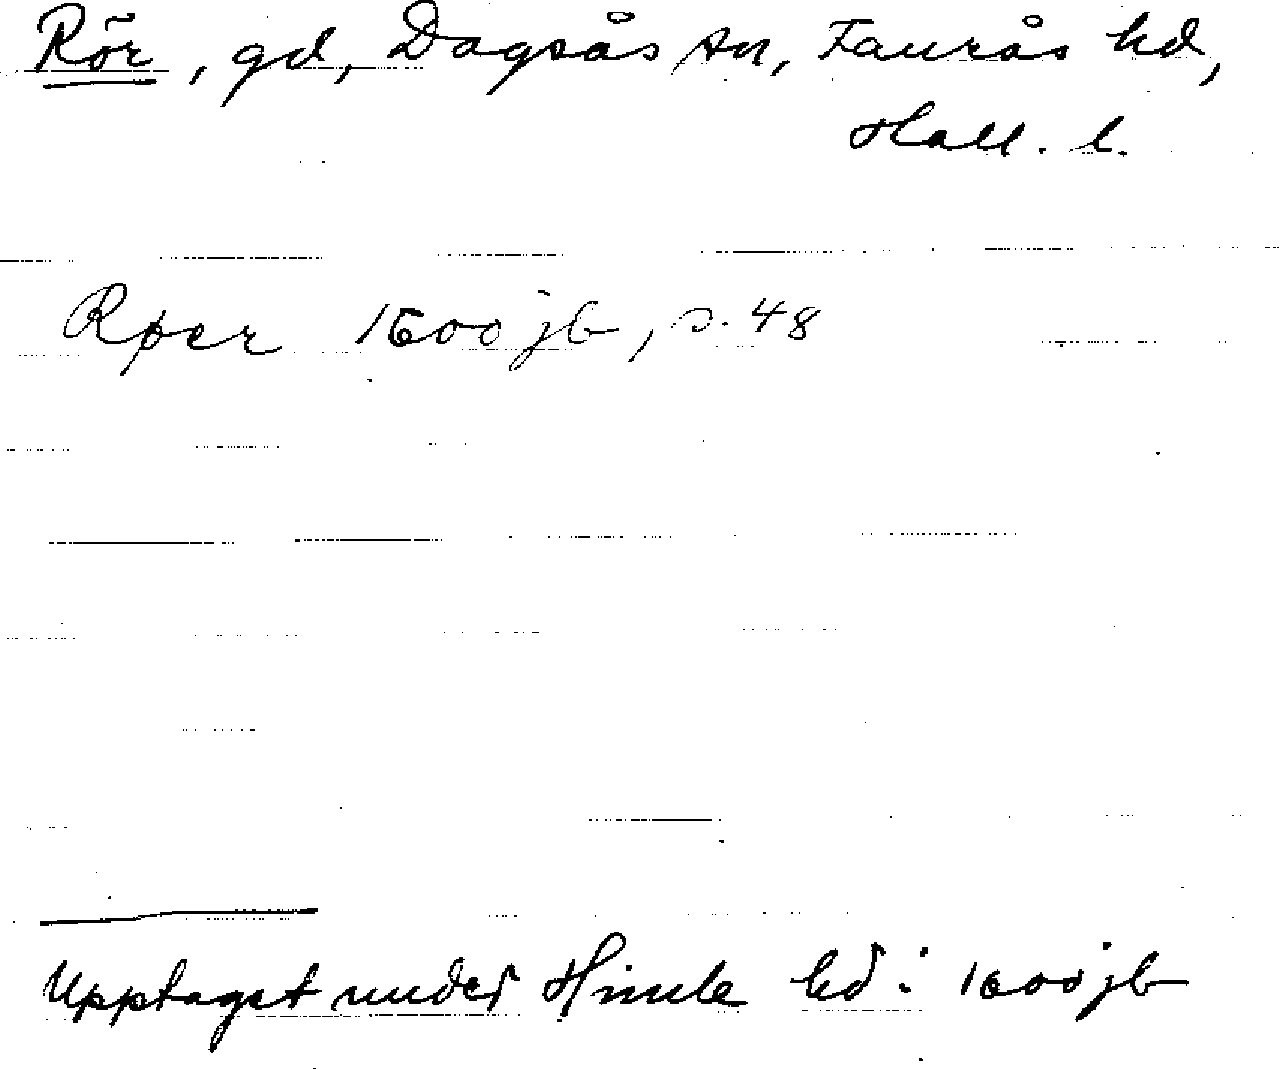 Rör, gd, Dagsås sn, Faurås hd,
Hall. l.
Røer 1600 jb, s. 48
Upptaget under Himle hd i 1600 jb